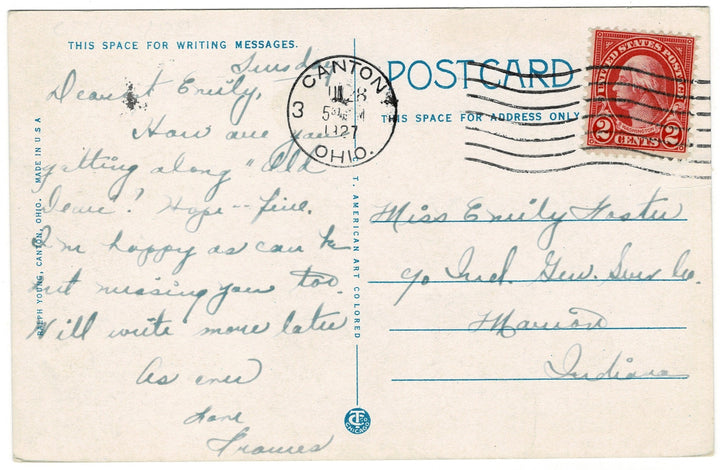 THIS SPACE FOR WRITING MESSAGES.
Sunday
Dearest Emily,
How are you
getting along "Old
Dear"? Hope -- fine.
I'm happy as can be
but missing you too.
Will write more later
As ever
Love
Frances
RALPH YOUNG, CANTON, OHIO. MADE IN U.S.A
C. T. AMERICAN ART COLORED
POST CARD
THIS SPACE FOR ADDRESS ONLY
CANTON
3
28
1927
OHIO.
UNITED STATES POSTAGE
2 CENTS 2
Miss Emily Foster
c/o Ind. Gen. Serv Co.
Marion
Indiana
CHICAGO